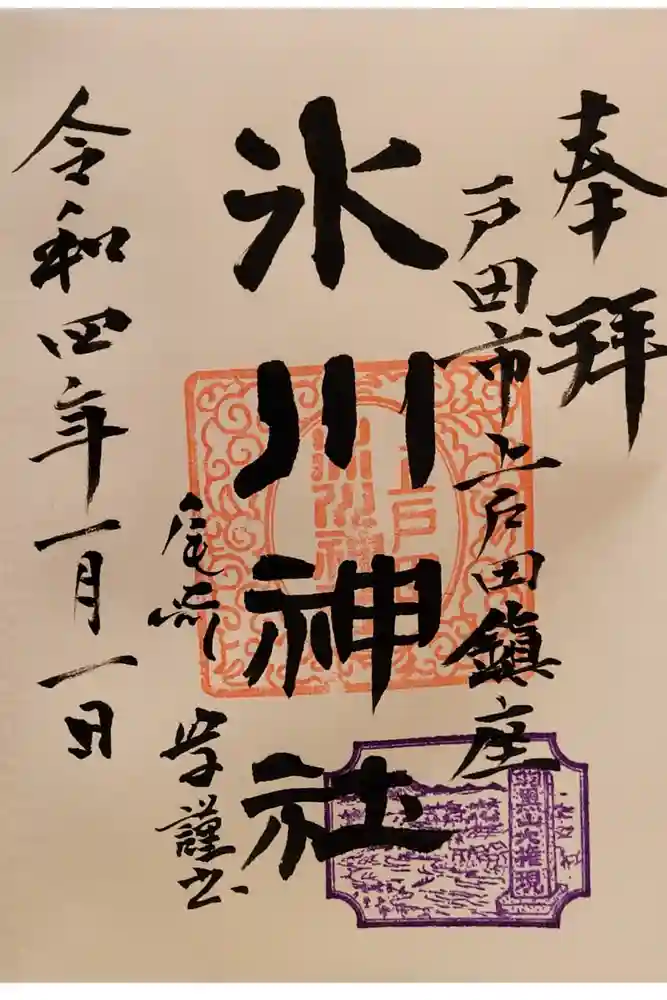 奉拝
戸田市上戸田鎮座
氷川神社
令和四年一月一日
謹書
羽黒山大権現